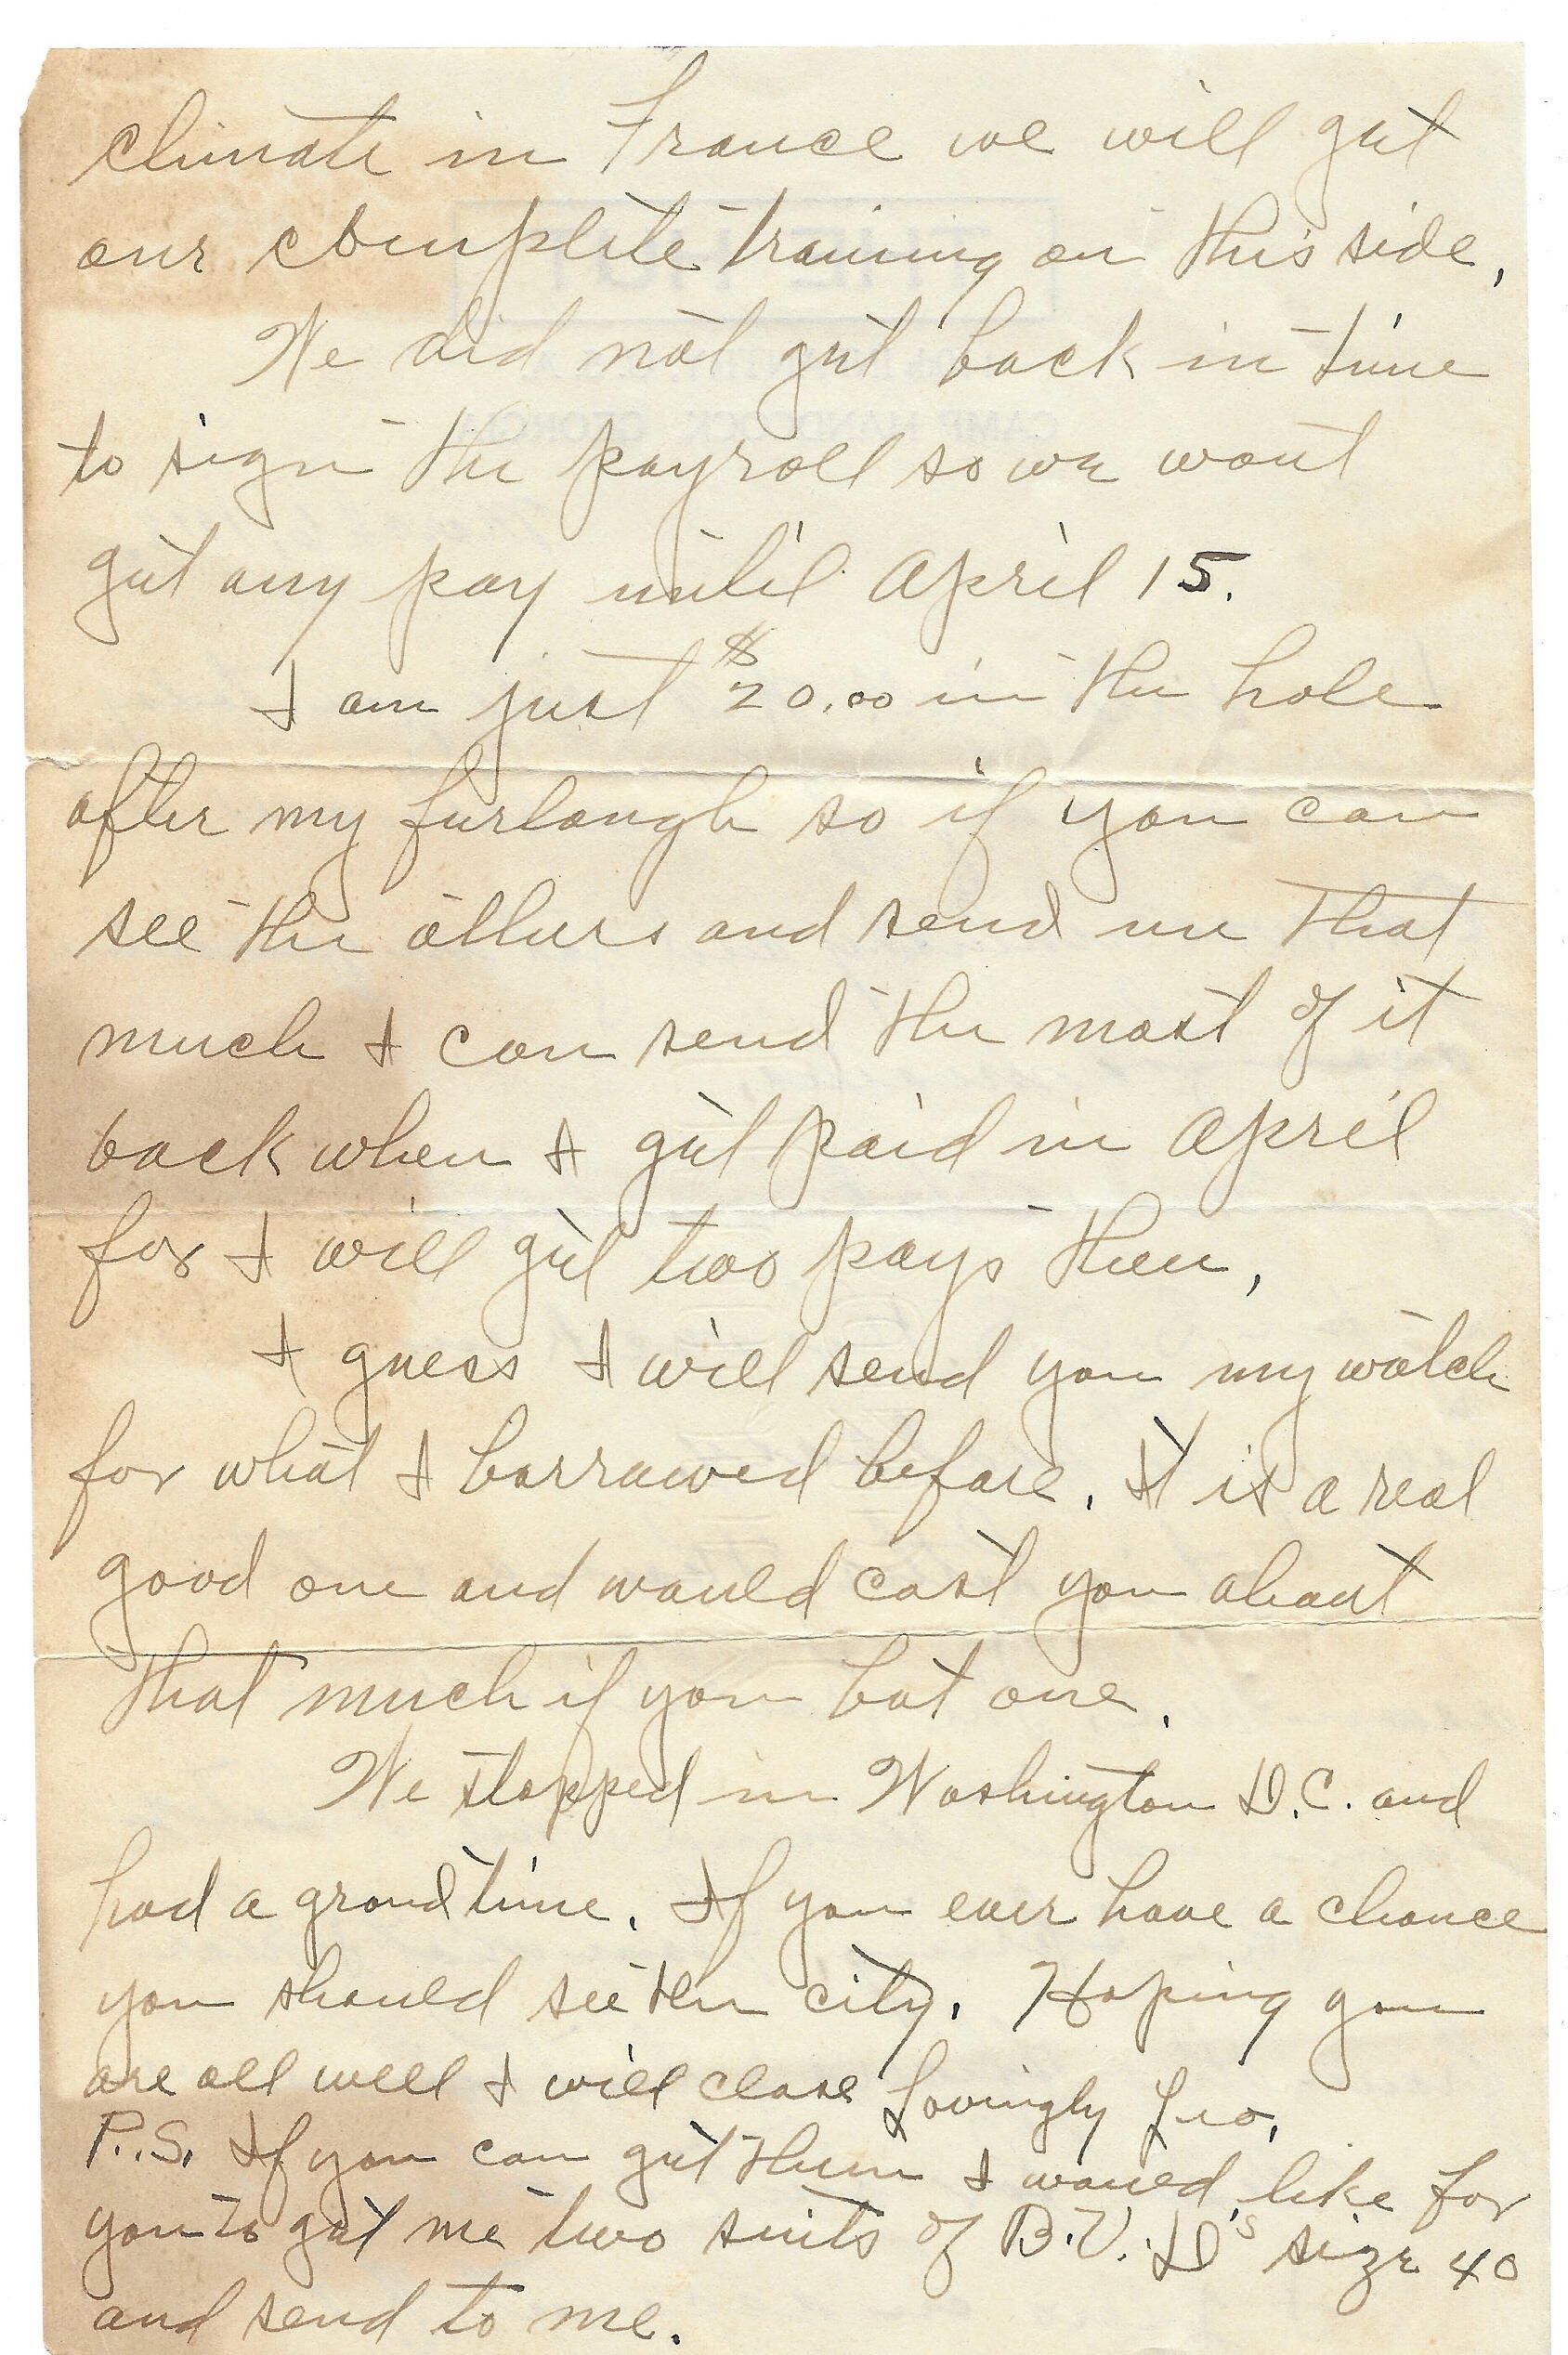 climate in France we will get
our complete training on this side,
We did not get back in time
to sign the payroll so we wont
get any pay until April 15.
I am just $20.00 in the hole
after my furlough so if you can
see the others and send me that
much I can send the most of it
back when I get paid in April
for I will get two pays then,
I guess I will send you my watch
for what I borrowed before. It is a real
good one and would cost you about
that much if you bot one.
We stopped in Washington D.C. and
had a grand time. If you ever have a chance
you should see the city. Hoping you
are all well I will close Lovingly Leo,
P.S. If you can get them I would like for
you to get me two suits of B.V.D's size 40
and send to me.